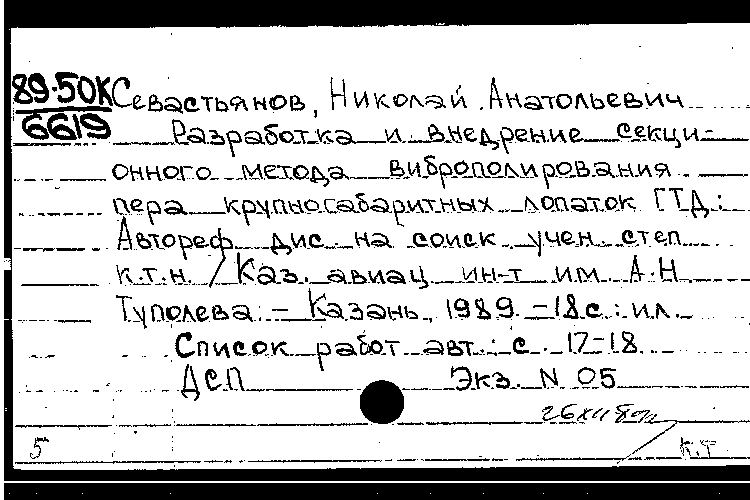 89-50К Севастьянов, Николай Анатольевич
6619 Разработка и внедрение секци-
онного метода виброполирования
пера крупногабаритных лопаток ГТД:
Автореф. дис. на соиск. учен. степ.
к.т.н. / Каз. авиац. ин-т им. А.Н.
Туполева. - Казань, 1989. - 18 с.: ил.
Список работ авт.: с. 17-18
ДСП Экз. N 05
5 К.Т